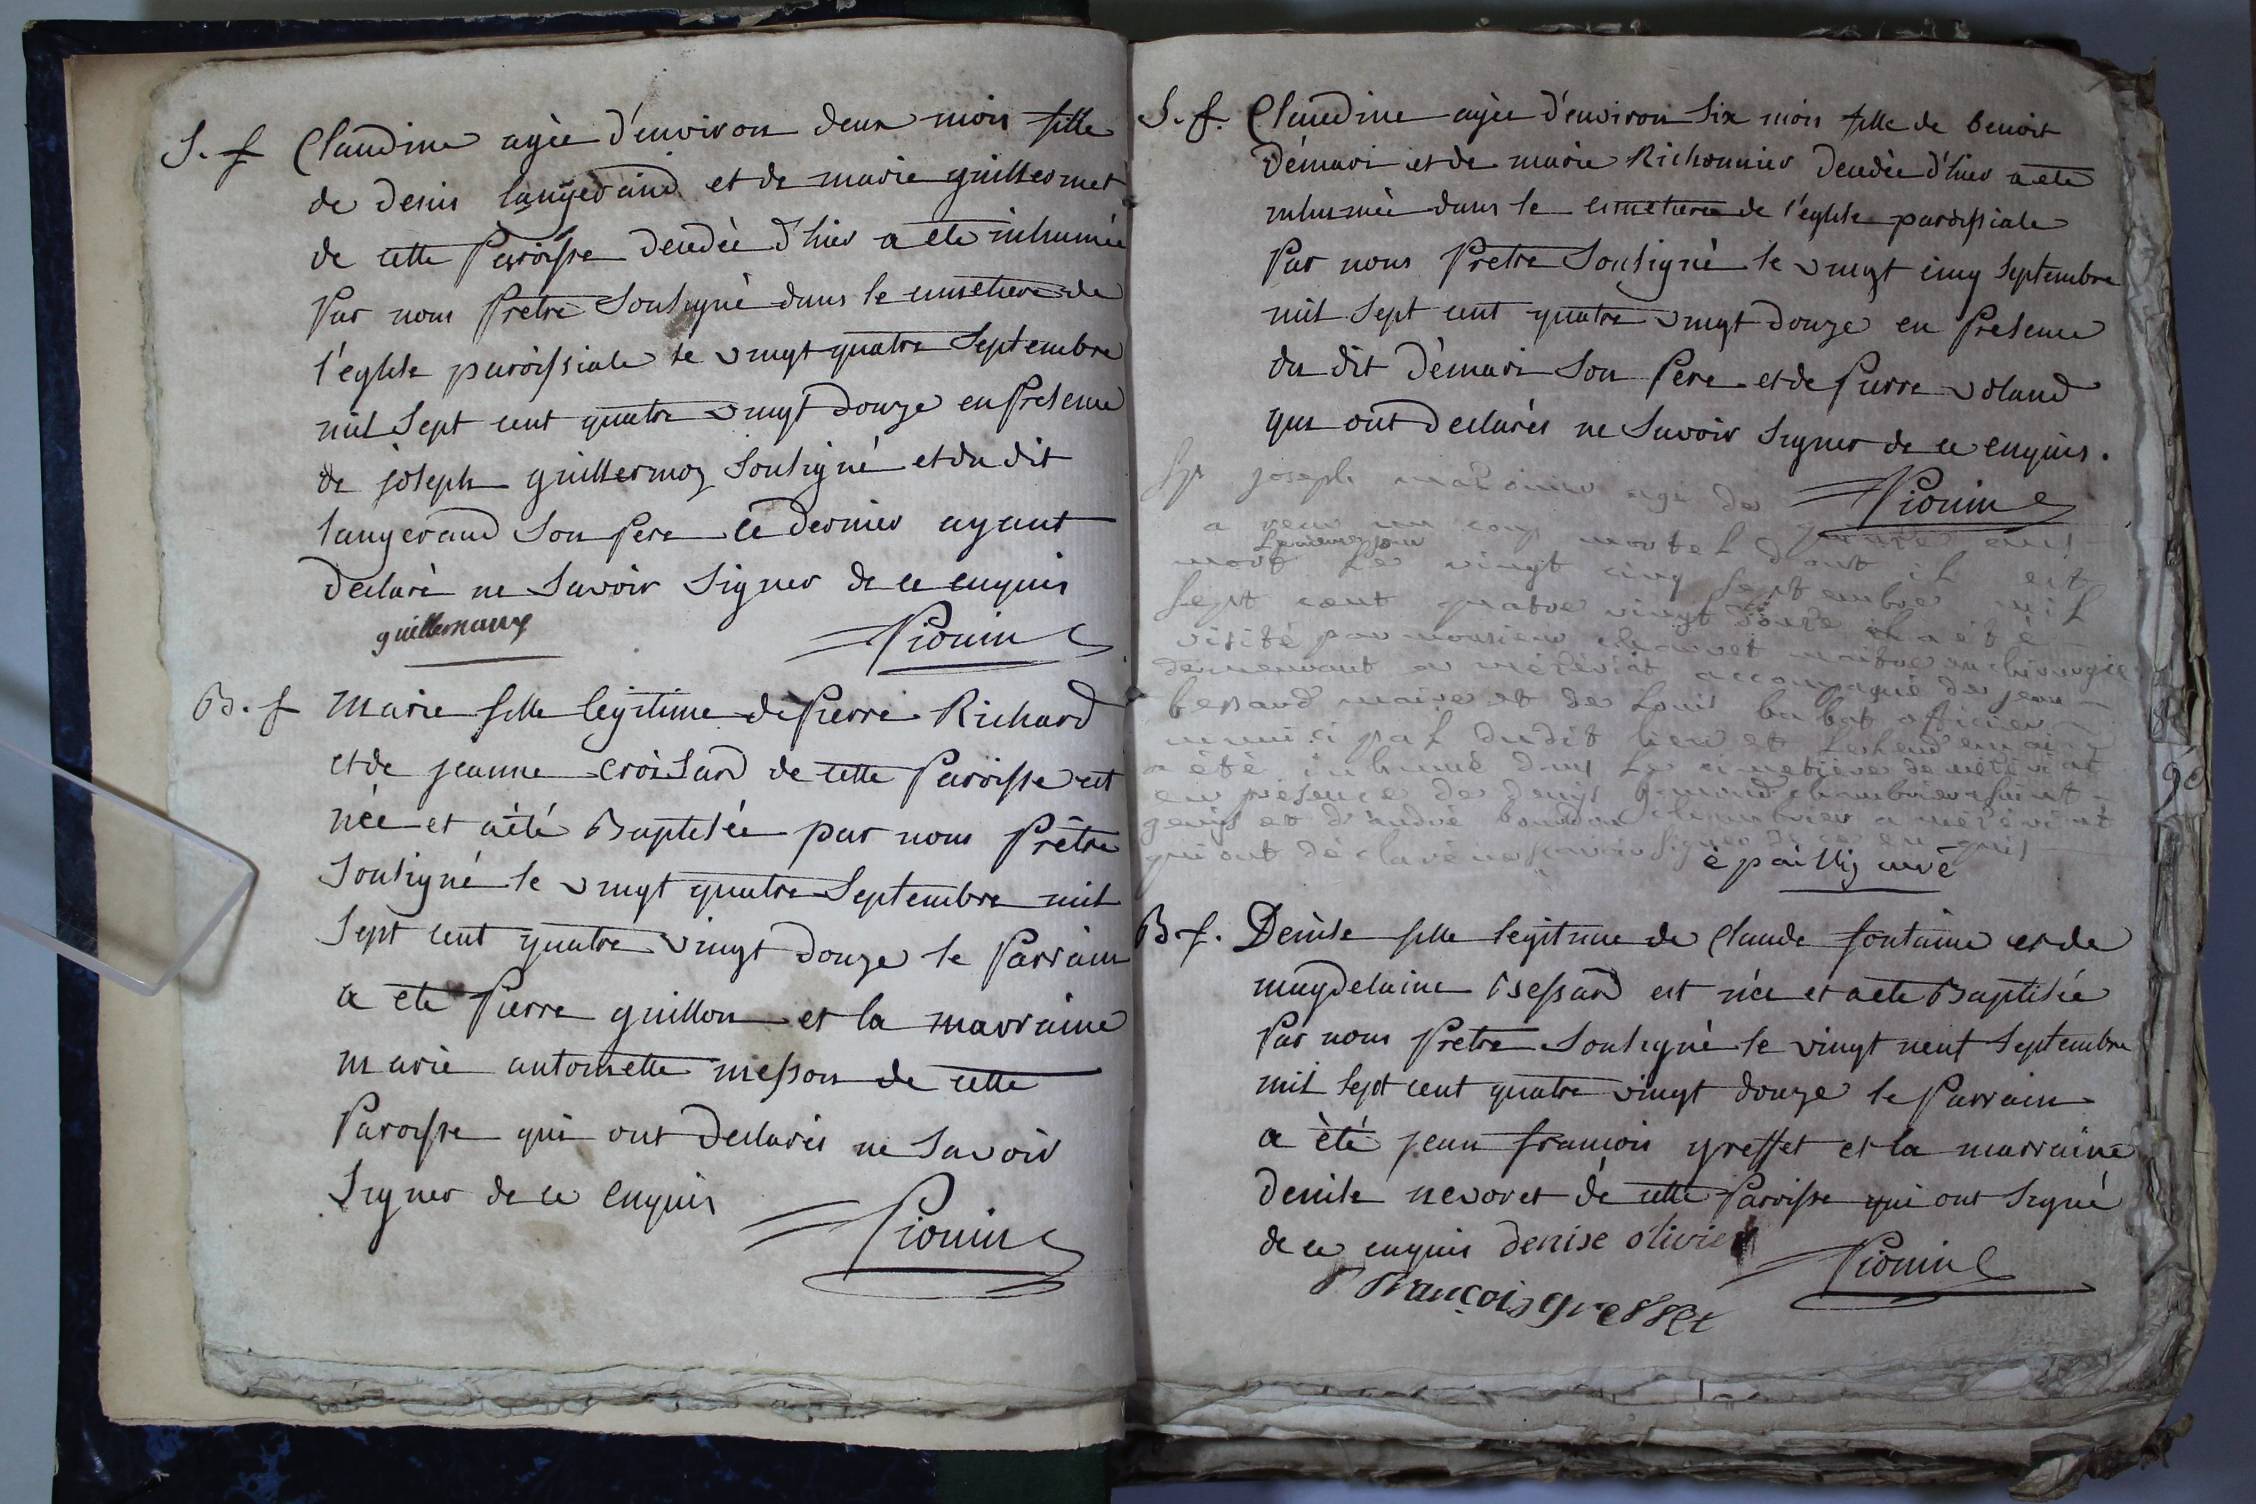 S. f Claudine agée d'environ deux mois fille
de denis langerand et de marie guillermet
de cette Paroisse decedée d'hier a eté inhumée
Par nous Prêtre Soussigné dans le cimetiere de
l'eglise paroissiale le vingt quatre Septembre
mil Sept cent quatre vingt douze en Presence
de joseph guillermoz Soussigné et du dit
langerand Son Pere ce dernier ayant
declaré ne Savoir Signer de ce enquis
guillermoz Pionin
B. f Marie fille legitime de Pierre Richard
et de jeanne croisard de cette Paroisse est
née et a été Baptisée par nous Prêtre
Soussigné le vingt quatre Septembre mil
Sept cent quatre vingt douze le Parrain
a eté Pierre guillon et la marraine
marie antoinette messon de cette
Paroisse qui ont declarés ne Savoir
Signer de ce enquis
Pionin
S. f. Claudine agée d'environ Six mois fille de benoit
Démari et de marie Richonnier decedée d'hier a eté
inhumée dans le cimetiere de l'eglise paroissiale
Par nous Prêtre Soussigné le vingt cinq Septembre
mil Sept cent quatre vingt douze en Presence
du dit Démari Son Pere et de Pierre voland
qui ont declarés ne Savoir Signer de ce enquis.
Pionin
joseph agé de
a un coup mortel dont il est
mort le vingt cinq septembre mil
sept cent quatre vingt douze il a été
visité par monsieur chauvet maitre en chirurgie
demeurant a accompagné de jean
bessard maire et de louis babat officier
municipal dudit lieu et le lendemain
a été inhumé dans le cimetiere de
en presence de denis
et d'andré
qui ont déclaré ne savoir signer de ce enquis
curé
B f. Denise fille legitime de Claude fontaine et de
magdelaine Bessard est née et a eté Baptisée
Par nous Prêtre Soussigné le vingt neuf Septembre
mil Sept cent quatre vingt douze le Parrain
a été jean francois greffet et la marraine
denise nevoret de cette Paroisse qui ont Signé
de ce enquis denise olivier
Pionin
françois greffet
90